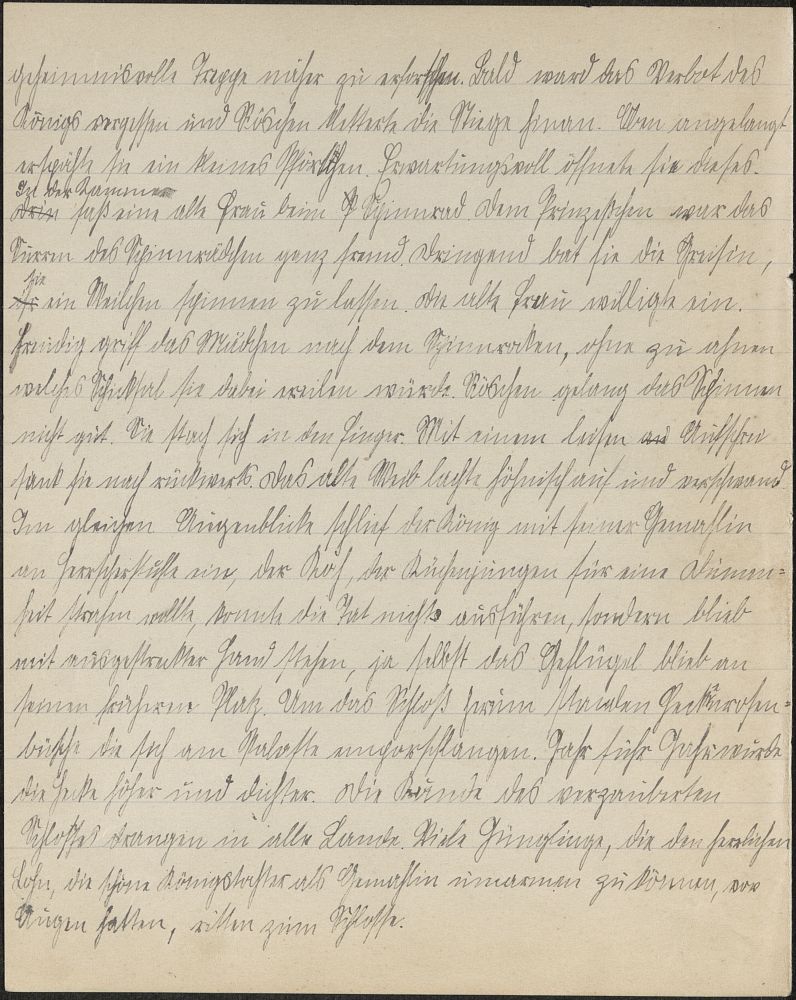 geheimnisvolle Treppe näher zu erforschen. Bald ward das Verbot des
Königs vergessen und Röschen kletterte die Stiege hinan. Oben angelangt
erspähte sie ein kleines Pförtchen. Erwartungsvoll öffnete sie dieses.
In der Kammer
Drin saß eine alte Frau beim Spinnrad. Dem Prinzeßchen war das
Surren des Spinnrädchen ganz fremd. Dringend bat sie die Greisin,
sie
ihr ein Weilchen spinnen zu lassen. Die alte Frau willigte ein.
Freudig griff das Mädchen nach dem Spinnrocken, ohne zu ahnen
welches Schicksal sie dabei ereilen würde. Röschen gelang das Spinnen
nicht gut. Sie stach sich in den Finger. Mit einem leisen au Aufschrei
sank sie nach rückwerts. Das alte Weib lachte höhnisch auf und verschwand
Im gleichen Augenblicke schlief der König mit seiner Gemahlin
an Herrscherstuhle ein, der Koch, der Küchenjungen für eine Dumm=
heit strafen wollte, konnte die Tat nicht ausführen, sondern blieb
mit ausgestreckter Hand stehen, ja selbst das Geflügel blieb an
seinen früheren Platz. Um das Schloß herum standen Heckenrosen=
büsche die sich am Palaste emporschlangen. Jahr führ Jahr wurde
die Hecke höher und dichter. Die Kunde des verzauberten
Schlosses drangen in alle Lande. Viele Jünglinge, die den herrlichen
Lohn, die schöne Königstochter als Gemahlin umarmen zu können, vor
Augen hatten, ritten zum Schlosse.